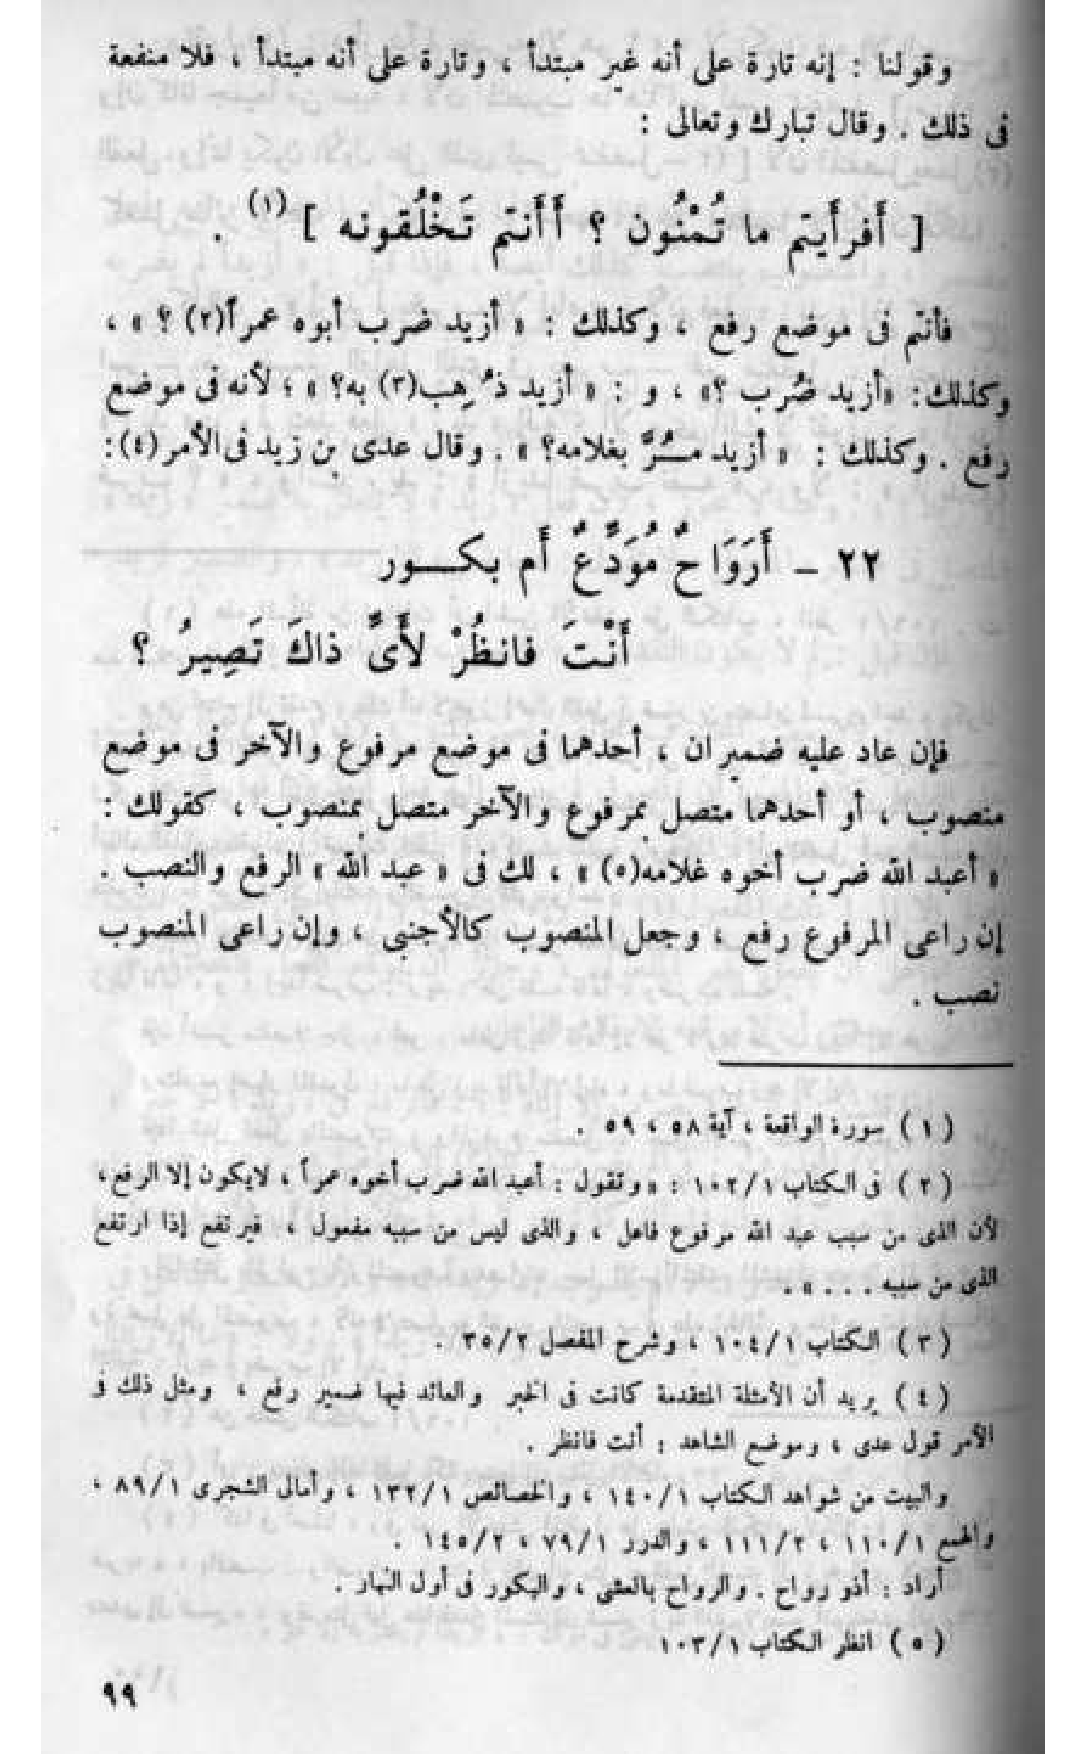 وقولنا : إنه تارة على أنه غير مبتدأ ، وتارة على أنه مبتدأ ، فلا منفعة
فى ذلك . وقال تبارك وتعالى :
[ أَفرأَيتم ما تُمْنُون ؟ أَأَنتم تَخْلُقونه ] (١) .
فأنتم فى موضع رفع ، وكذلك : « أزيد ضرب أبوه عمراً(٢) ؟ » ،
وكذلك : «أزيد ضُرب ؟» ، و : « أزيد ذُهِب(٣) به؟ » ؛ لأنه فى موضع
رفع . وكذلك : « أزيد مـــُرَّ بغلامه؟ » . وقال عدى بن زيد فى الأمر(٤):
٢٢ – أَرَوَاحٌ مُوَدَّعٌ أَم بكـــور
أَنْتَ فانظُرْ لأَىِّ ذاكَ تَصِيرُ ؟
فإن عاد عليه ضميران ، أحدهما فى موضع مرفوع والآخر فى موضع
منصوب ، أو أحدهما متصل بمرفوع والآخر متصل بمنصوب ، كقولك :
« أعبد الله ضرب أخوه غلامه(٥) » ، لك فى « عبد الله » الرفع والنصب .
إن راعى المرفوع رفع ، وجعل المنصوب كالأجنبى ، وإن راعى المنصوب
نصب .
( ١ ) سورة الواقعة ، آية ٥٨ ، ٥٩ .
( ٢ ) فى الكتاب ١٠٢/١ : « وتقول : أعبد الله ضرب أخوه عمراً ، لايكون إلا الرفع ،
لأن الذى من سبب عبد الله مرفوع فاعل ، والذى ليس من سببه مفعول ، فيرتفع إذا ارتفع
الذى من سببه . . . » .
( ٣ ) الكتاب ١٠٤/١ ، وشرح المفصل ٣٥/٢ .
( ٤ ) يريد أن الأمثلة المتقدمة كانت فى الخبر والعائد فيها ضمير رفع ، ومثل ذلك فى
الأمر قول عدى ، وموضع الشاهد : أنت فانظر .
والبيت من شواهد الكتاب ١٤٠/١ ، والخصائص ١٣٢/١ ، وأمالى الشجرى ٨٩/١ ،
والهمع ١١٠/١ ، ١١١/٢ ، والدرر ٧٩/١ ، ١٤٥/٢ .
أراد : أذو رواح . والرواح بالعشى ، والبكور فى أول النهار .
( ٥ ) انظر الكتاب ١٠٣/١
٩٩